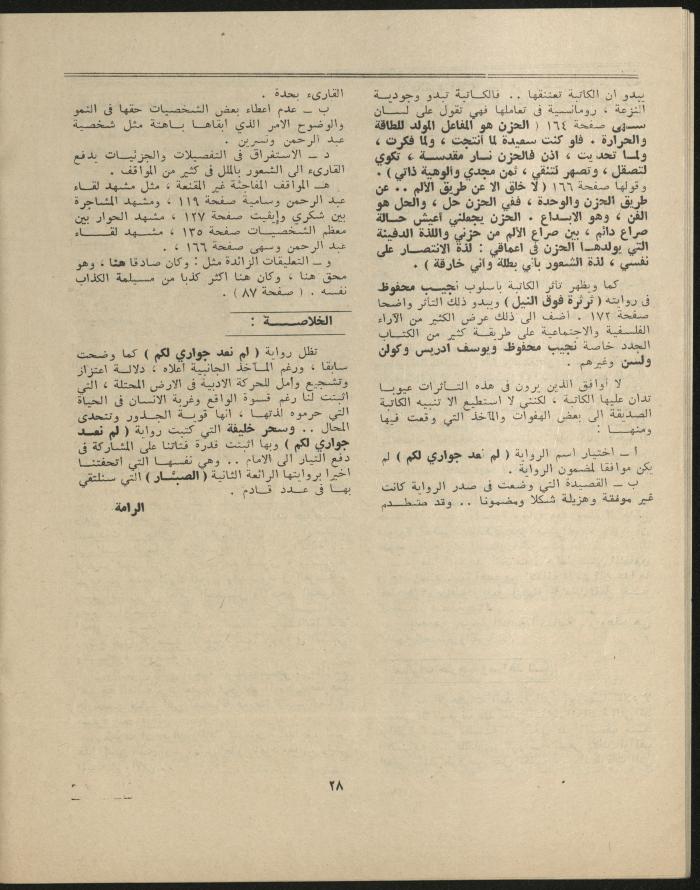 يبدو ان الكاتبة تعتنقها .. فالكـاتبة تبدو وجودية
النزعة ، رومانسية في تعاملها فهي تقول على لسـان
سـهى صفحة ١٦٤ ( الحزن هو المفاعل المولد للطاقة
والحرارة . فلو كنت سعيدة لما انتجت ، ولما فكرت ،
ولما تحديت ، اذن فالحزن نـار مقدسـة ، تكوي
لتصقل ، وتصهر لتنقي ، ثمن مجدي والوهية ذاتي ) .
وقولها صفحة ١٦٦ ( لا خلق الا عن طريق الالم .. عن
طريق الحزن والوحدة ، ففي الحزن حل ، والحل هو
الفن ، وهو الابـداع . الحزن يجعلني اعيش حـالة
صراع دائم ، بين صراع الالم من حزني واللذة الدفينة
التي يولدهـا الحزن في اعماقي : لذة الانتصـار على
نفسي ، لذة الشعور بأني بطلة واني خارقة ) .
كما ويظهر تأثر الكاتبة باسلوب نجيـب محفوظ
في روايته ( ثرثرة فوق النيل ) ويبدو ذلك التأثر واضحا
صفحة ١٧٢ . اضف الى ذلك عرض الكثير من الآراء
الفلسفية والاجتماعية على طريقـة كثير من الكتـاب
الجدد خاصة نجيب محفوظ ويوسف ادريس وكولن
ولسن وغيرهم .
لا اوافق الذين يرون في هذه التـأثرات عيوبـا
تدان عليها الكاتبة ، لكنني لا استطيع الا تنبيه الكاتبة
الصديقة الى بعض الهفوات والمآخذ التي وقعت فيها
ومنهــا :
ا ــ اختيار اسم الرواية ( لم نعد جواري لكم ) لم
يكن موافقا لمضمون الرواية .
ب ــ القصيدة التي وضعت في صدر الرواية كانت
غير موفقة وهزيلة شكلا ومضمونا .. وقد صـطـدم
القارىء بحدة .
ب ــ عدم اعطاء بعض الشخصيات حقها في النمو
والوضوح الامر الذي ابقاهـا بـاهتة مثل شخصية
عبد الرحمن ونسرين .
د ــ الاستغراق في التفصيلات والجزئيـات يدفع
القارىء الى الشعور بالملل في كثير من المواقف .
هـ ــ المواقف المفاجئة غير المقنعة ، مثل مشهد لقـاء
عبد الرحمن وسامية صفحة ١١٩ ، ومشهد المشاجرة
بين شكري وإيفيت صفحة ١٢٧ ، مشهد الحوار بين
معظم الشخصيـات صفحة ١٣٥ ، مشهد لقــاء
عبد الرحمن وسهى صفحة ١٦٦ .
و ــ التعليقات الزائدة مثل : وكان صادقا هنا ، وهو
محق هنا ، وكان هنا اكثر كذبا من مسيلمة الكذاب
نفسه . ( صفحة ٨٧ ) .
الخلاصـــة :
تظل رواية ( لم نعد جواري لكم ) كما وضحت
سابقا ، ورغم المـآخذ الجانبية اعلاه ، دلالـة اعتزاز
وتشجيع وامل للحركة الادبية في الارض المحتلة ، التي
اثبتت لنا رغم قسوة الواقع وغربة الانسان في الحياة
التي حرموه لذتهـا ، انها قويـة الجـذور وتتحدى
المحال .. وسحر خليفة التي كتبت رواية ( لم نعـد
جواري لكم ) وبها اثبتت قدرة فتاتنا على المشاركة في
دفع التيار الى الامام .. وهي نفسهـا التي اتحفتنـا
اخيرا بروايتها الرائعة الثانية ( الصبّـار ) التي سنلتقي
بهـا في عـدد قـادم .
الرامة
٢٨